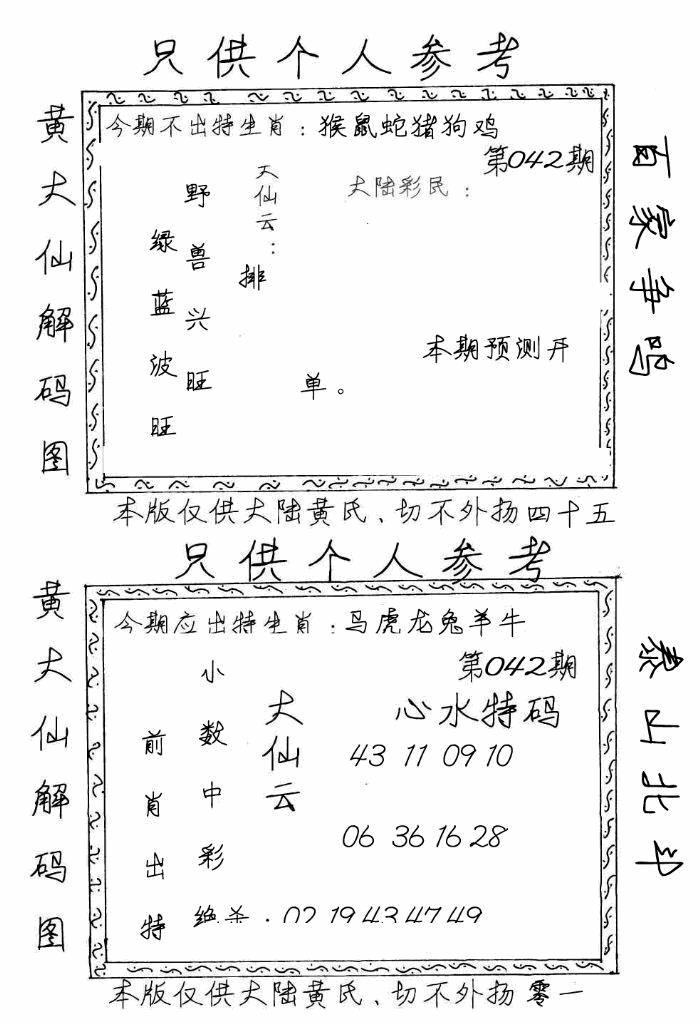 只供个人参考
黄大仙解码图
今期不出特生肖：猴鼠蛇猪狗鸡
第042期
大陆彩民：
大仙云：
排
野兽兴旺
绿蓝波旺
本期预测开
单。
百家争鸣
本版仅供大陆黄氏、切不外扬四十五
只供个人参考
黄大仙解码图
今期应出特生肖：马虎龙兔羊牛
第042期
心水特码
大仙云
小数中彩
前肖出特
43 11 09 10
06 36 16 28
绝杀：02 19 43 47 49
泰山北斗
本版仅供大陆黄氏、切不外扬零一